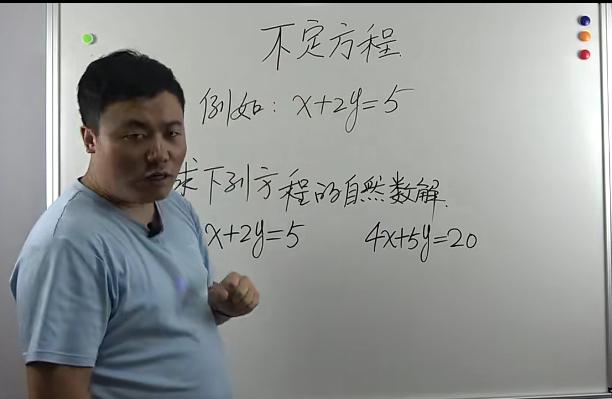 不定方程
例如: x+2y=5
求下列方程的自然数解.
x+2y=5 4x+5y=20